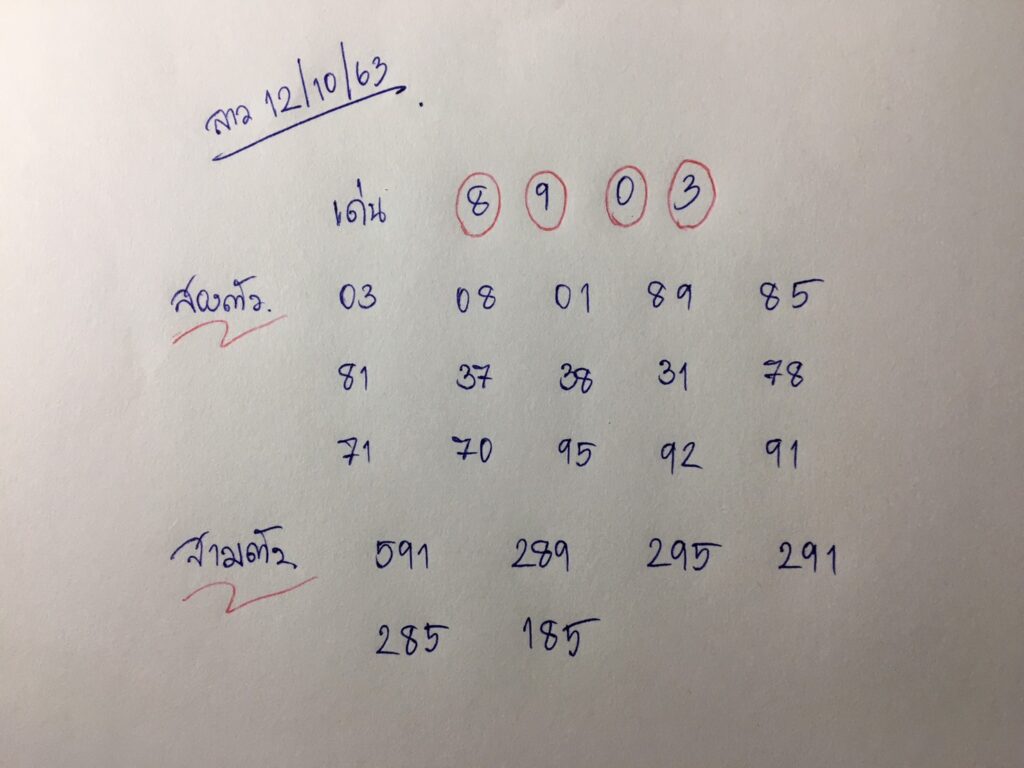 ลาว 12/10/63
เด่น 8 9 0 3
สองตัว. 03 08 01 89 85
81 37 38 31 78
71 70 95 92 91
สามตัว 591 289 295 291
285 185